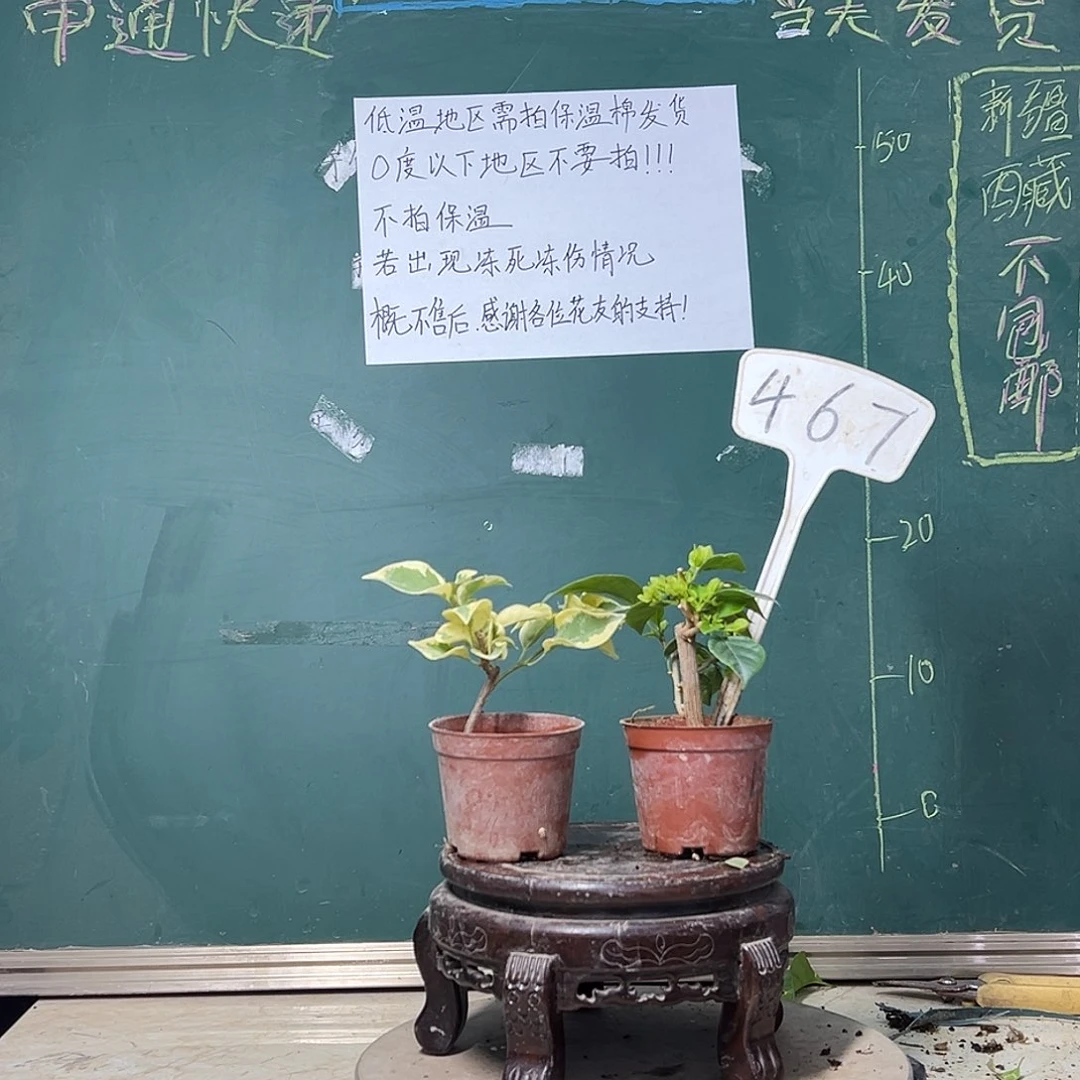 申通快递
当天发货
低温地区需拍保温棉发货
0度以下地区不要拍!!!
不拍保温
若出现冻死冻伤情况
概不售后.感谢各位花友的支持!
467
新疆
西藏
不
包
邮
50
40
20
10
0